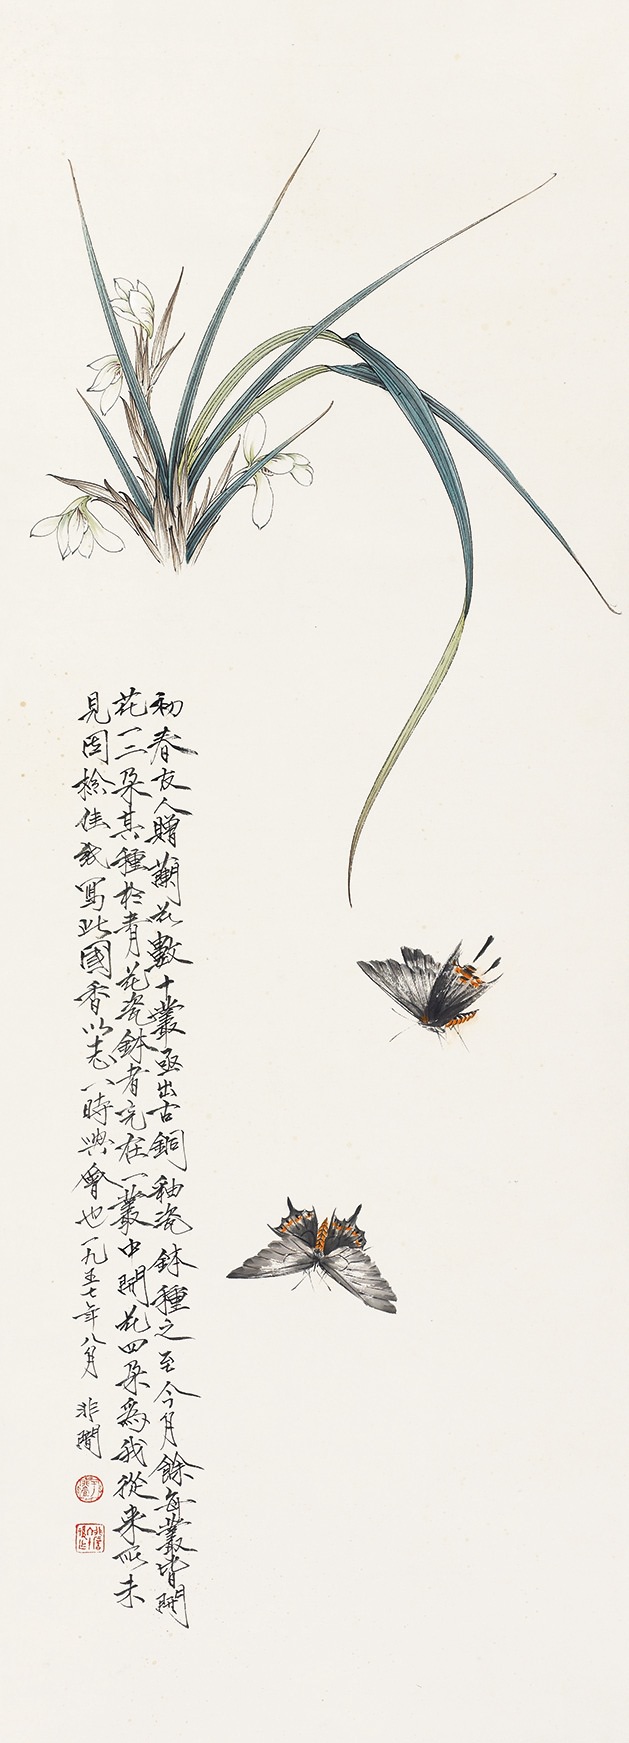 初春友人贈蘭花數十叢亟出古銅釉瓷鉢種之至今月餘每叢皆開
花一二朵其種於青花瓷鉢者完在一叢中開花四朵為我從來所未
見因檢佳紙寫此國香以志一時興會也一九五七年八月 非闇